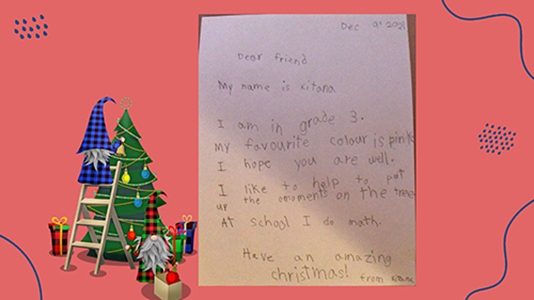 Dec 9th 2021
Dear friend
My name is Kitana
I am in grade 3.
My favourite colour is pink
I hope you are well.
I like to help to put
up the ornoments on the tree.
At school I do math.
Have an amazing
christmas!
from Kitana